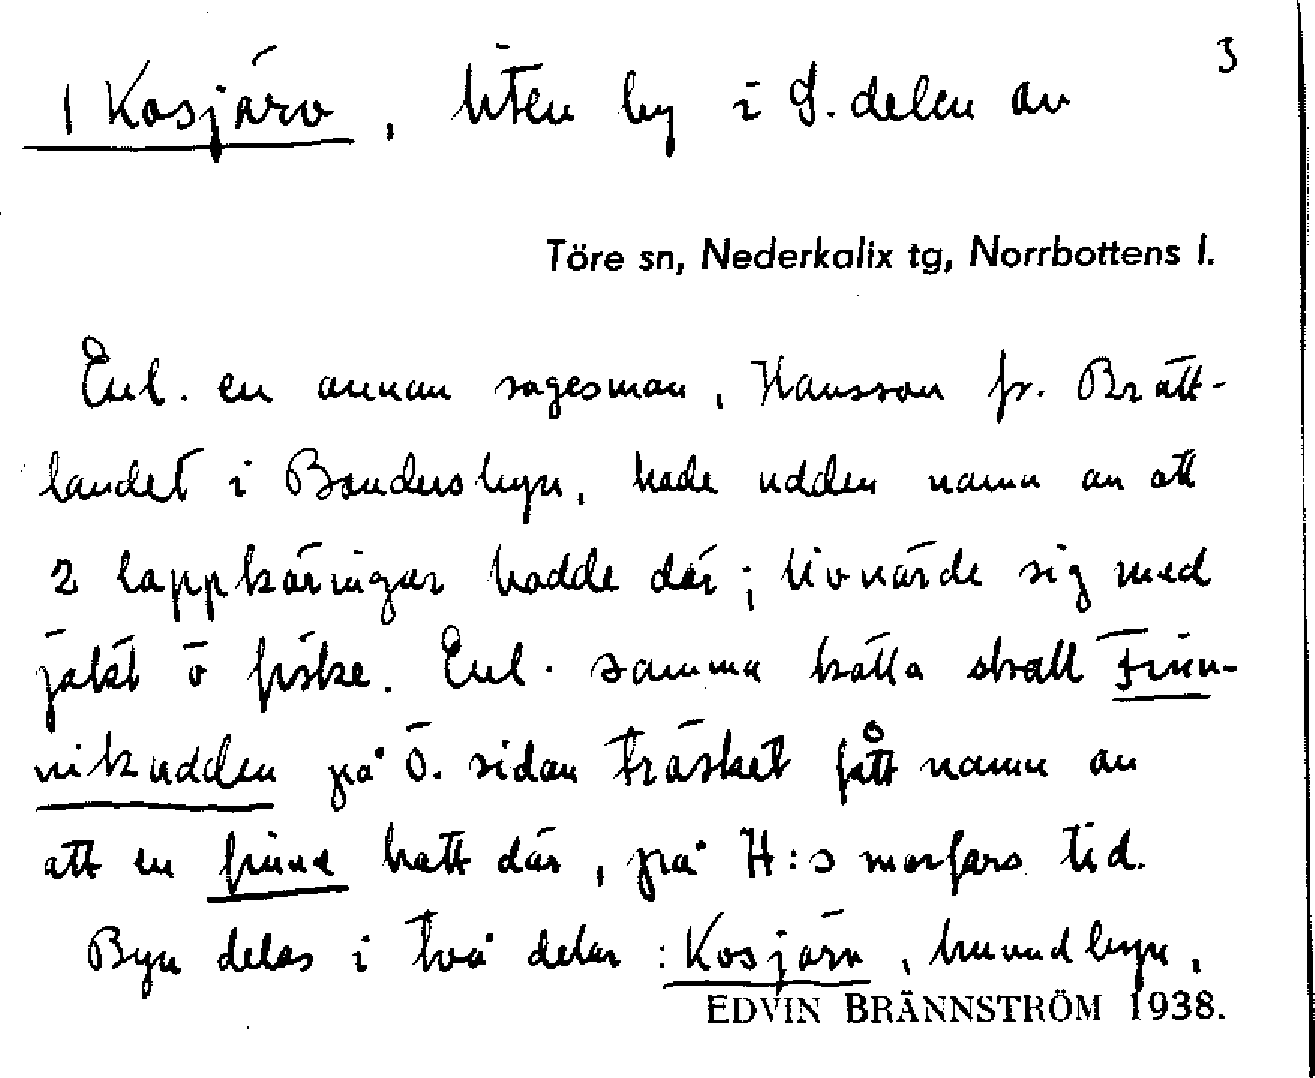 3
1 Kosjärv, liten by i S. delen av
Töre sn, Nederkalix tg, Norrbottens l.
Enl. en annan sagesman, Hansson fr. Brätt-
landet i Bondersbyn, hade udden namn av att
2 lappkäringar bodde där; livnärde sig med
jakt o fiske. Enl. samma källa skall Finn-
viksudden på Ö. sidan träsket fått namn av
att en finne bott där, på H:s morfars tid.
Byn delas i två delar: Kosjärv, huvudbyn,
EDVIN BRÄNNSTRÖM 1938.